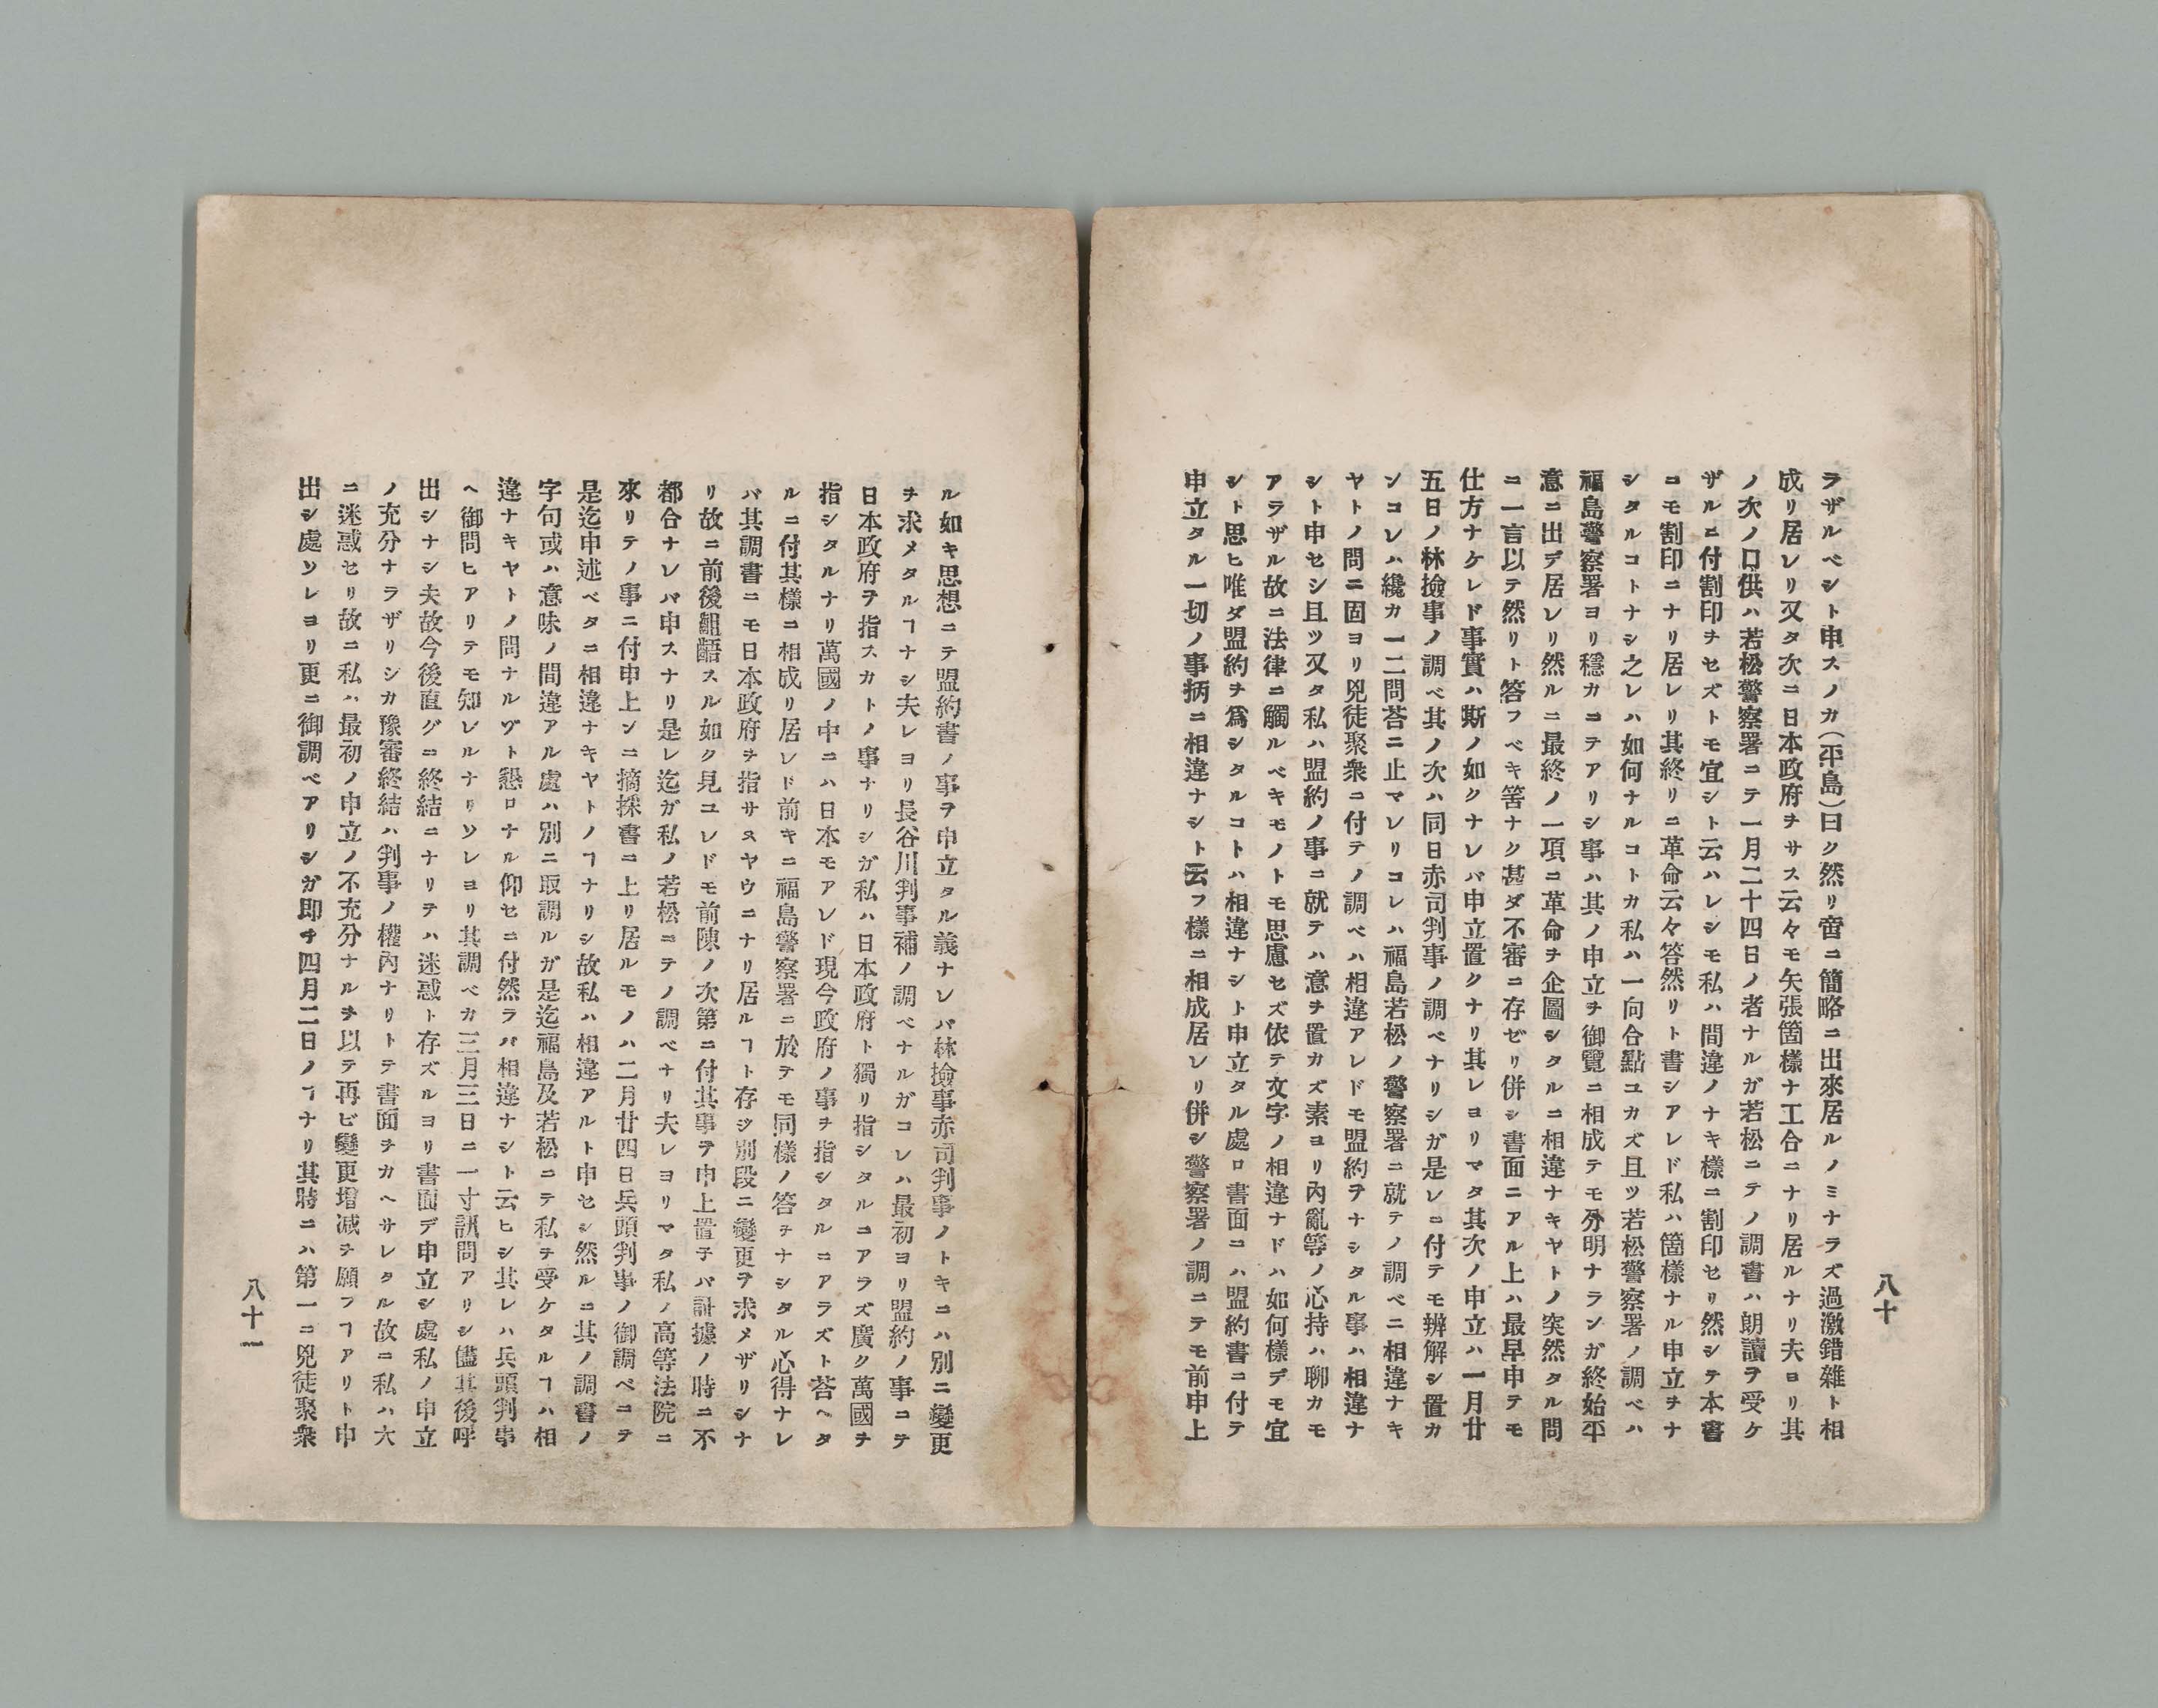 ラザルベシト申スノカ（平島）曰ク然リ啻ニ簡略ニ出來居ルノミナラズ過激錯雜ト相
成リ居レリ又タ次ニ日本政府ヲサス云々モ矢張箇樣ナ工合ニナリ居ルナリ夫ヨリ其
ノ次ノ口供ハ若松警察署ニテ一月二十四日ノ者ナルガ若松ニテノ調書ハ朗讀ヲ受ケ
ザルニ付割印ヲセズトモ宜シト云ハレシモ私ハ間違ノナキ樣ニ割印セリ然シテ本書
ニモ割印ニナリ居レリ其終リニ革命云々答然リト書シアレド私ハ箇樣ナル申立ヲナ
シタルコトナシ之レハ如何ナルコトカ私ハ一向合點ユカズ且ツ若松警察署ノ調ベハ
福島警察署ヨリ穩カニテアリシ事ハ其ノ申立ヲ御覽ニ相成テモ分明ナランガ終始平
意ニ出デ居レリ然ルニ最終ノ一項ニ革命ヲ企圖シタルニ相違ナキヤトノ突然タル問
ニ一言以テ然リト答フベキ筈ナク甚ダ不審ニ存ゼリ併シ書面ニアル上ハ最早申テモ
仕方ナケレド事實ハ斯ノ如クナレバ申立置クナリ其レヨリマタ其次ノ申立ハ一月廿
五日ノ林撿事ノ調ベ其ノ次ハ同日赤司判事ノ調ベナリシガ是レニ付テモ辨解シ置カ
ンコレハ纔カ一二問荅ニ止マレリコレハ福島若松ノ警察署ニ就テノ調ベニ相違ナキ
ヤトノ問ニ固ヨリ兇徒聚衆ニ付テノ調ベハ相違アレドモ盟約ヲナシタル事ハ相違ナ
シト申セシ且ツ又タ私ハ盟約ノ事ニ就テハ意ヲ置カズ素ヨリ內亂等ノ心持ハ聊カモ
アラザル故ニ法律ニ觸ルベキモノトモ思慮セズ依テ文字ノ相違ナドハ如何樣デモ宜
シト思ヒ唯ダ盟約ヲ爲シタルコトハ相違ナシト申立タル處ロ書面ニハ盟約書ニ付テ
申立タル一切ノ事柄ニ相違ナシト云フ樣ニ相成居レリ併シ警察署ノ調ニテモ前申上
八十
ル如キ思想ニテ盟約書ノ事ヲ申立タル義ナレバ林撿事赤司判事ノトキニハ別ニ變更
ヲ求メタルヿナシ夫レヨリ長谷川判事補ノ調ベナルガコレハ最初ヨリ盟約ノ事ニテ
日本政府ヲ指スカトノ事ナリシガ私ハ日本政府ト獨リ指シタルニアラズ廣ク萬國ヲ
指シタルナリ萬國ノ中ニハ日本モアレド現今政府ノ事ヲ指シタルニアラズト荅ヘタ
ルニ付其樣ニ相成リ居レド前キニ福島警察署ニ於テモ同樣ノ答ヲナシタル心得ナレ
バ其調書ニモ日本政府ヲ指サヌヤウニナリ居ルヿト存ジ別段ニ變更ヲ求メザリシナ
リ故ニ前後齟齬スル如ク見ユレドモ前陳ノ次第ニ付其事ヲ申上置子バ証據ノ時ニ不
都合ナレバ申スナリ是レ迄ガ私ノ若松ニテノ調ベナリ夫レヨリマタ私ノ高等法院ニ
來リテノ事ニ付申上ンニ摘採書ニ上リ居ルモノハ二月廿四日兵頭判事ノ御調ベニテ
是迄申述ベタニ相違ナキヤトノヿナリシ故私ハ相違アルト申セシ然ルニ其ノ調書ノ
字句或ハ意味ノ間違アル處ハ別ニ取調ルガ是迄福島及若松ニテ私ヲ受ケタルヿハ相
違ナキヤトノ問ナルヅト懇ロナル仰セニ付然ラバ相違ナシト云ヒシ其レハ兵頭判事
ヘ御問ヒアリテモ知レルナリソレヨリ其調ベカ三月三日ニ一寸訊問アリシ儘其後呼
出シナシ夫故今後直グニ終結ニナリテハ迷惑ト存ズルヨリ書面デ申立シ處私ノ申立
ノ充分ナラザリシカ豫審終結ハ判事ノ權內ナリトテ書面ヲカヘサレタル故ニ私ハ大
ニ迷惑セリ故ニ私ハ最初ノ申立ノ不充分ナルヲ以テ再ビ變更增减ヲ願フヿアリト申
出シ處ソレヨリ更ニ御調ベアリシガ即チ四月二日ノヿナリ其時ニハ第一ニ兇徒聚衆
八十一